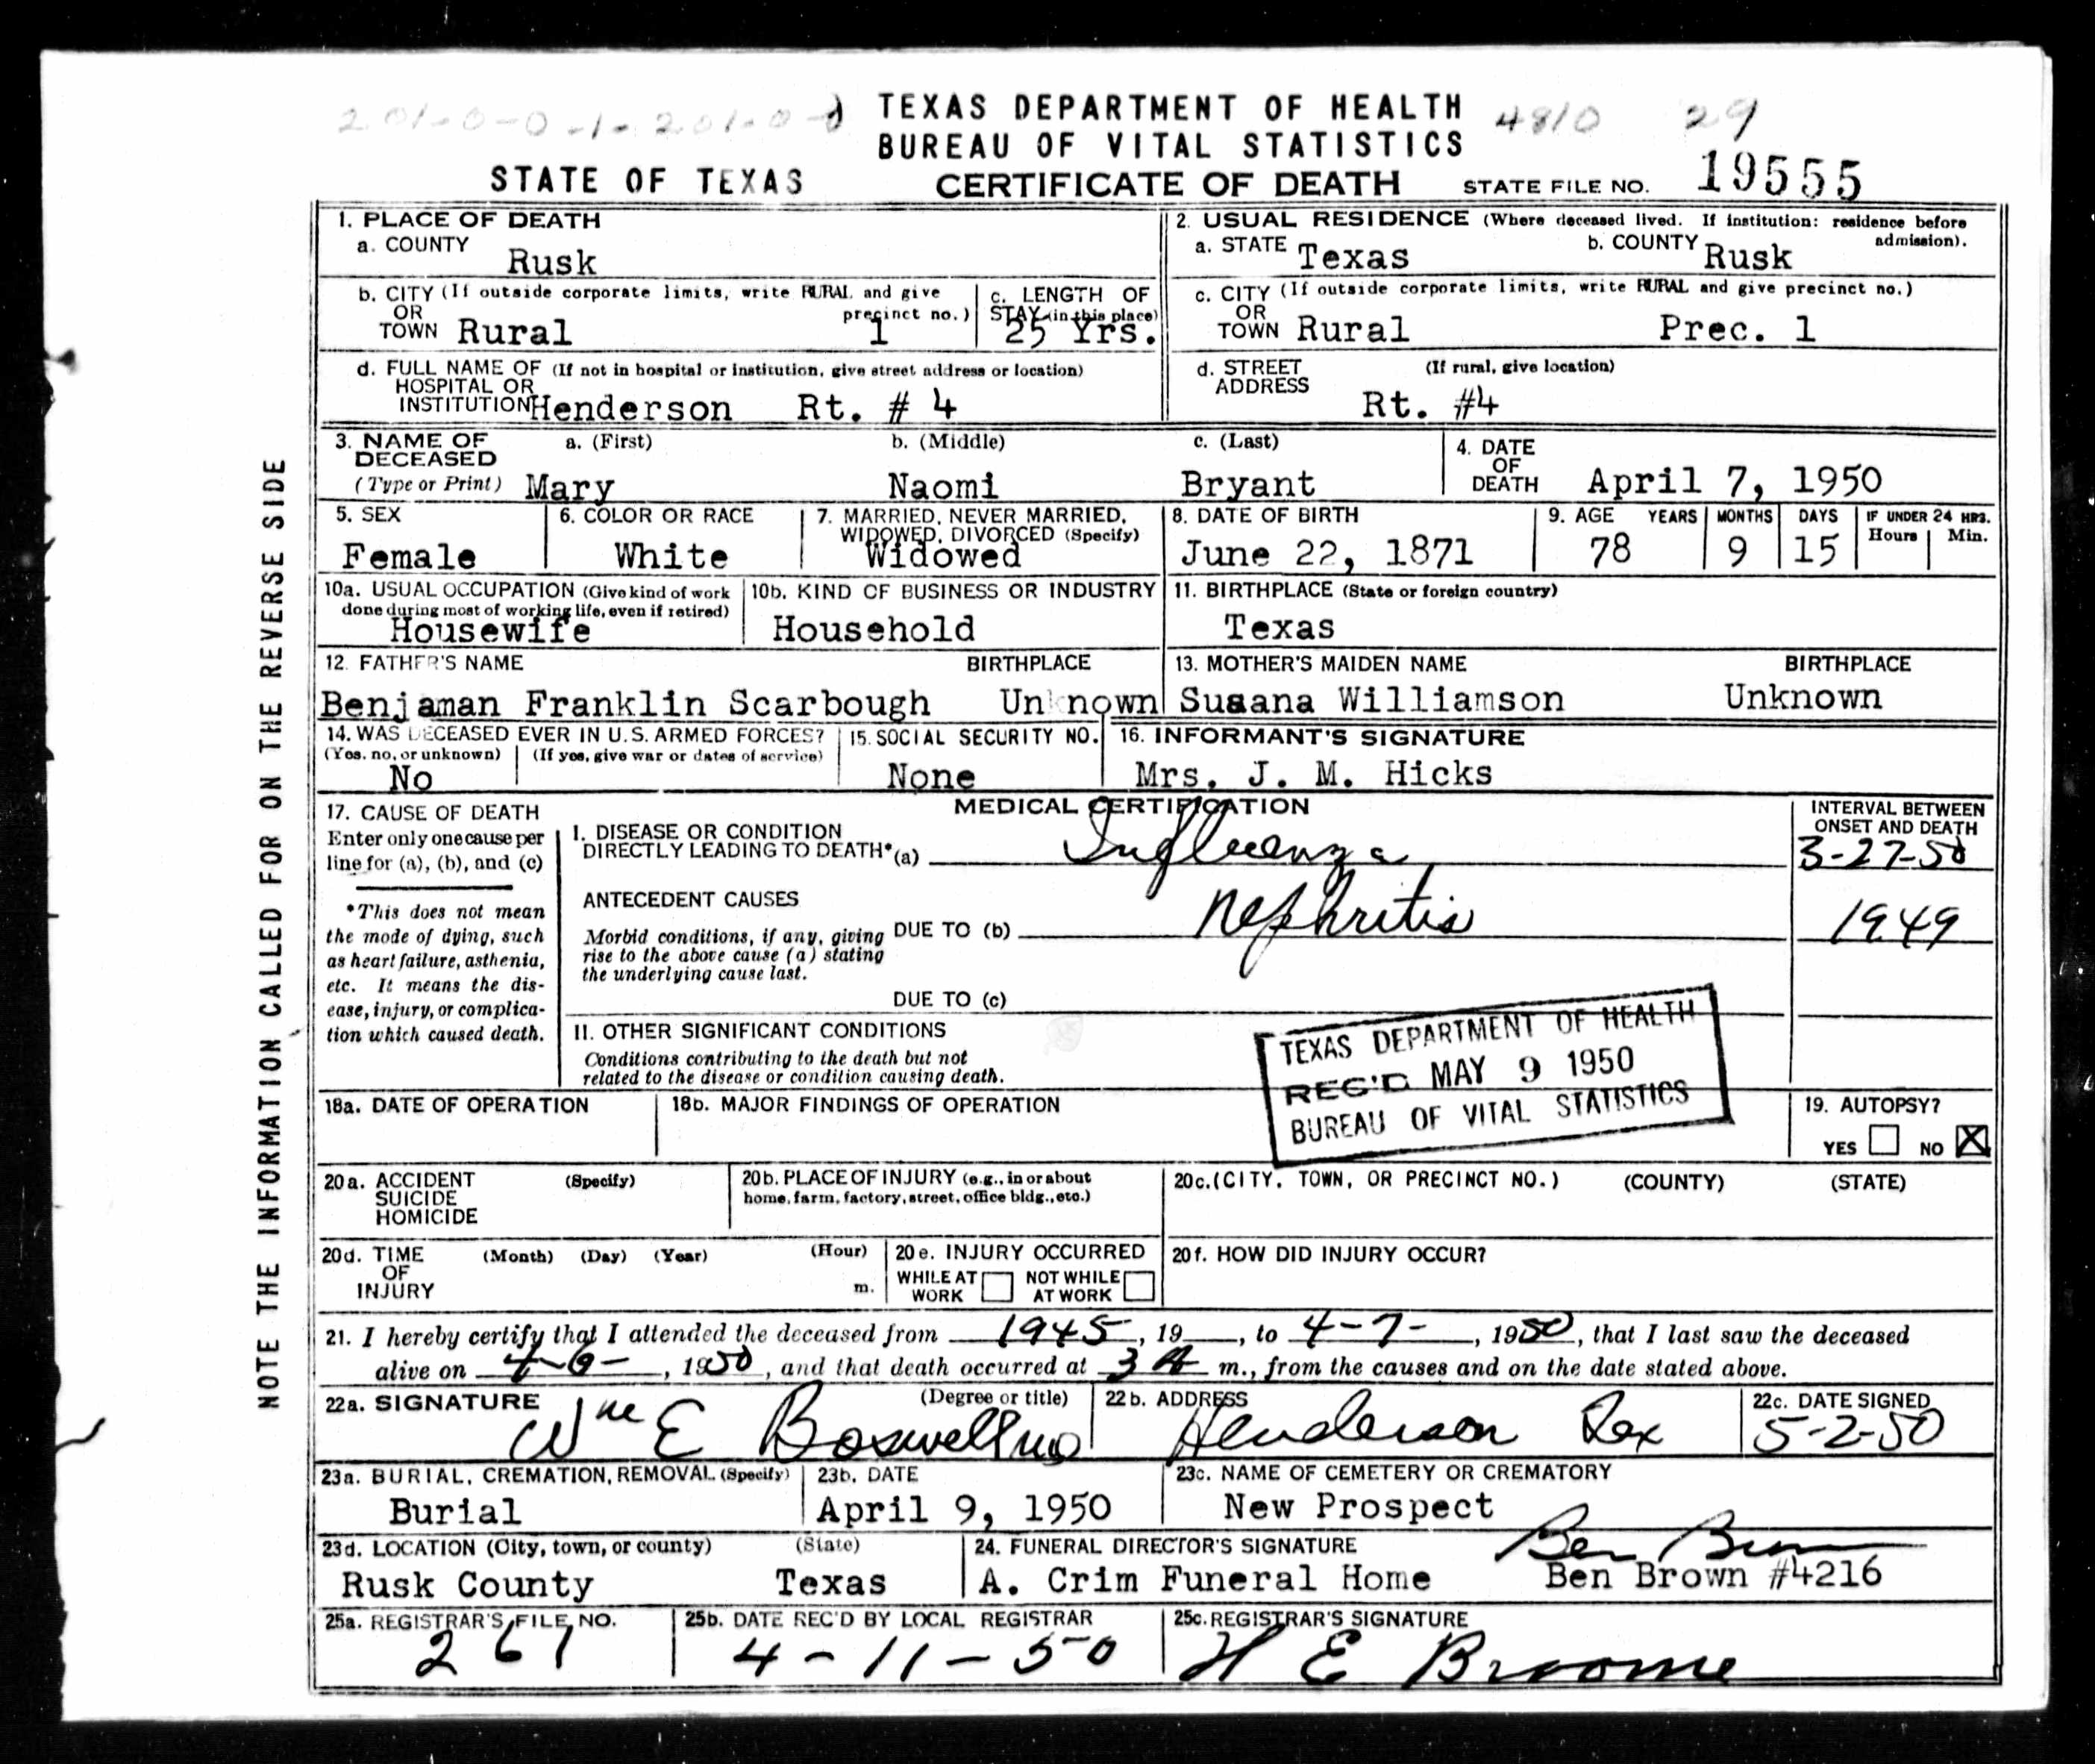 201-0-0-1-201-0-0
TEXAS DEPARTMENT OF HEALTH
4810 29
BUREAU OF VITAL STATISTICS
STATE OF TEXAS
CERTIFICATE OF DEATH
STATE FILE NO. 19555
NOTE THE INFORMATION CALLED FOR ON THE REVERSE SIDE
1. PLACE OF DEATH
a. COUNTY Rusk
2. USUAL RESIDENCE (Where deceased lived. If institution: residence before admission).
a. STATE Texas b. COUNTY Rusk
b. CITY (If outside corporate limits, write RURAL and give precinct no.)
OR
TOWN Rural 1
c. LENGTH OF
STAY (in this place)
25 Yrs.
c. CITY (If outside corporate limits, write RURAL and give precinct no.)
OR
TOWN Rural Prec. 1
d. FULL NAME OF (If not in hospital or institution, give street address or location)
HOSPITAL OR
INSTITUTION Henderson Rt. # 4
d. STREET (If rural, give location)
ADDRESS
Rt. #4
3. NAME OF DECEASED
(Type or Print)
a. (First) b. (Middle) c. (Last)
Mary Naomi Bryant
4. DATE
OF
DEATH April 7, 1950
5. SEX
Female
6. COLOR OR RACE
White
7. MARRIED, NEVER MARRIED,
WIDOWED, DIVORCED (Specify)
Widowed
8. DATE OF BIRTH
June 22, 1871
9. AGE YEARS MONTHS DAYS IF UNDER 24 HRS.
Hours Min.
78 9 15
10a. USUAL OCCUPATION (Give kind of work
done during most of working life, even if retired)
Housewife
10b. KIND OF BUSINESS OR INDUSTRY
Household
11. BIRTHPLACE (State or foreign country)
Texas
12. FATHER'S NAME BIRTHPLACE
Benjaman Franklin Scarbough Unknown
13. MOTHER'S MAIDEN NAME BIRTHPLACE
Susana Williamson Unknown
14. WAS DECEASED EVER IN U.S. ARMED FORCES?
(Yes, no, or unknown) (If yes, give war or dates of service)
No
15. SOCIAL SECURITY NO.
None
16. INFORMANT'S SIGNATURE
Mrs. J. M. Hicks
17. CAUSE OF DEATH
Enter only one cause per
line for (a), (b), and (c)
*This does not mean
the mode of dying, such
as heart failure, asthenia,
etc. It means the dis-
ease, injury, or complica-
tion which caused death.
MEDICAL CERTIFICATION
I. DISEASE OR CONDITION
DIRECTLY LEADING TO DEATH* (a) Influenza
INTERVAL BETWEEN
ONSET AND DEATH
3-27-50
ANTECEDENT CAUSES
Morbid conditions, if any, giving
rise to the above cause (a) stating
the underlying cause last.
DUE TO (b) Nephritis 1949
DUE TO (c)
II. OTHER SIGNIFICANT CONDITIONS
Conditions contributing to the death but not
related to the disease or condition causing death.
TEXAS DEPARTMENT OF HEALTH
REC'D MAY 9 1950
BUREAU OF VITAL STATISTICS
18a. DATE OF OPERATION
18b. MAJOR FINDINGS OF OPERATION
19. AUTOPSY?
YES NO X
20a. ACCIDENT (Specify)
SUICIDE
HOMICIDE
20b. PLACE OF INJURY (e.g., in or about
home, farm, factory, street, office bldg., etc.)
20c. (CITY, TOWN, OR PRECINCT NO.) (COUNTY) (STATE)
20d. TIME (Month) (Day) (Year) (Hour)
OF
INJURY m.
20e. INJURY OCCURRED
WHILE AT WORK NOT WHILE AT WORK
20f. HOW DID INJURY OCCUR?
21. I hereby certify that I attended the deceased from 1945, 19, to 4-7-, 1950, that I last saw the deceased
alive on 4-6-, 1950, and that death occurred at 3 A m., from the causes and on the date stated above.
22a. SIGNATURE (Degree or title)
Wm E Boswell MD
22b. ADDRESS
Henderson Tex
22c. DATE SIGNED
5-2-50
23a. BURIAL, CREMATION, REMOVAL (Specify)
Burial
23b. DATE
April 9, 1950
23c. NAME OF CEMETERY OR CREMATORY
New Prospect
23d. LOCATION (City, town, or county) (State)
Rusk County Texas
24. FUNERAL DIRECTOR'S SIGNATURE
Ben Brown
A. Crim Funeral Home Ben Brown #4216
25a. REGISTRAR'S FILE NO.
261
25b. DATE REC'D BY LOCAL REGISTRAR
4-11-50
25c. REGISTRAR'S SIGNATURE
H E Broome